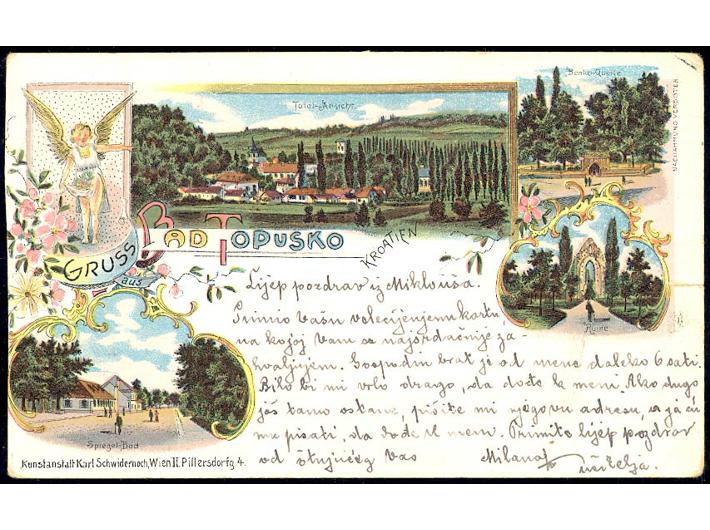 Total-Ansicht.
NACHAHMUNG VERBOTEN
GRUSS
aus
BAD TOPUSKO
KROATIEN
Ruine
Spiegel-Bad
Kunstanstalt Karl Schwidernoch, Wien II. Pillersdorfg 4.
Lijep pozdrav iz Miklouša.
Primio Vašu velecijenjenu kartu,
na kojoj Vam se najsrdačnije za-
hvaljujem. Gospodin brat je od mene daleko 6 sati.
Bilo bi mi vrlo drago, da dođe k meni. Ako dugo
još tamo ostane, pišite mi njegovu adresu, a ja ću
mu pisati, da dođe k meni. Primite lijep pozdrav
od štujućeg Vas Milana
učitelja.